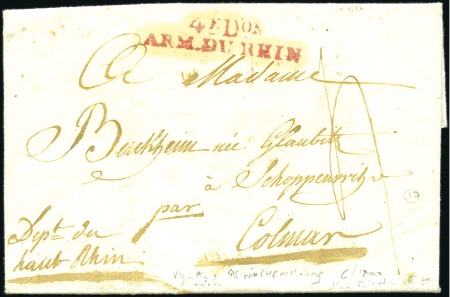 4E. DON
ARM. DU RHIN
A Madame
Berckheim née Glaubitz
à Schoppenwihr
par
Colmar
Dept. du
haut Rhin
17